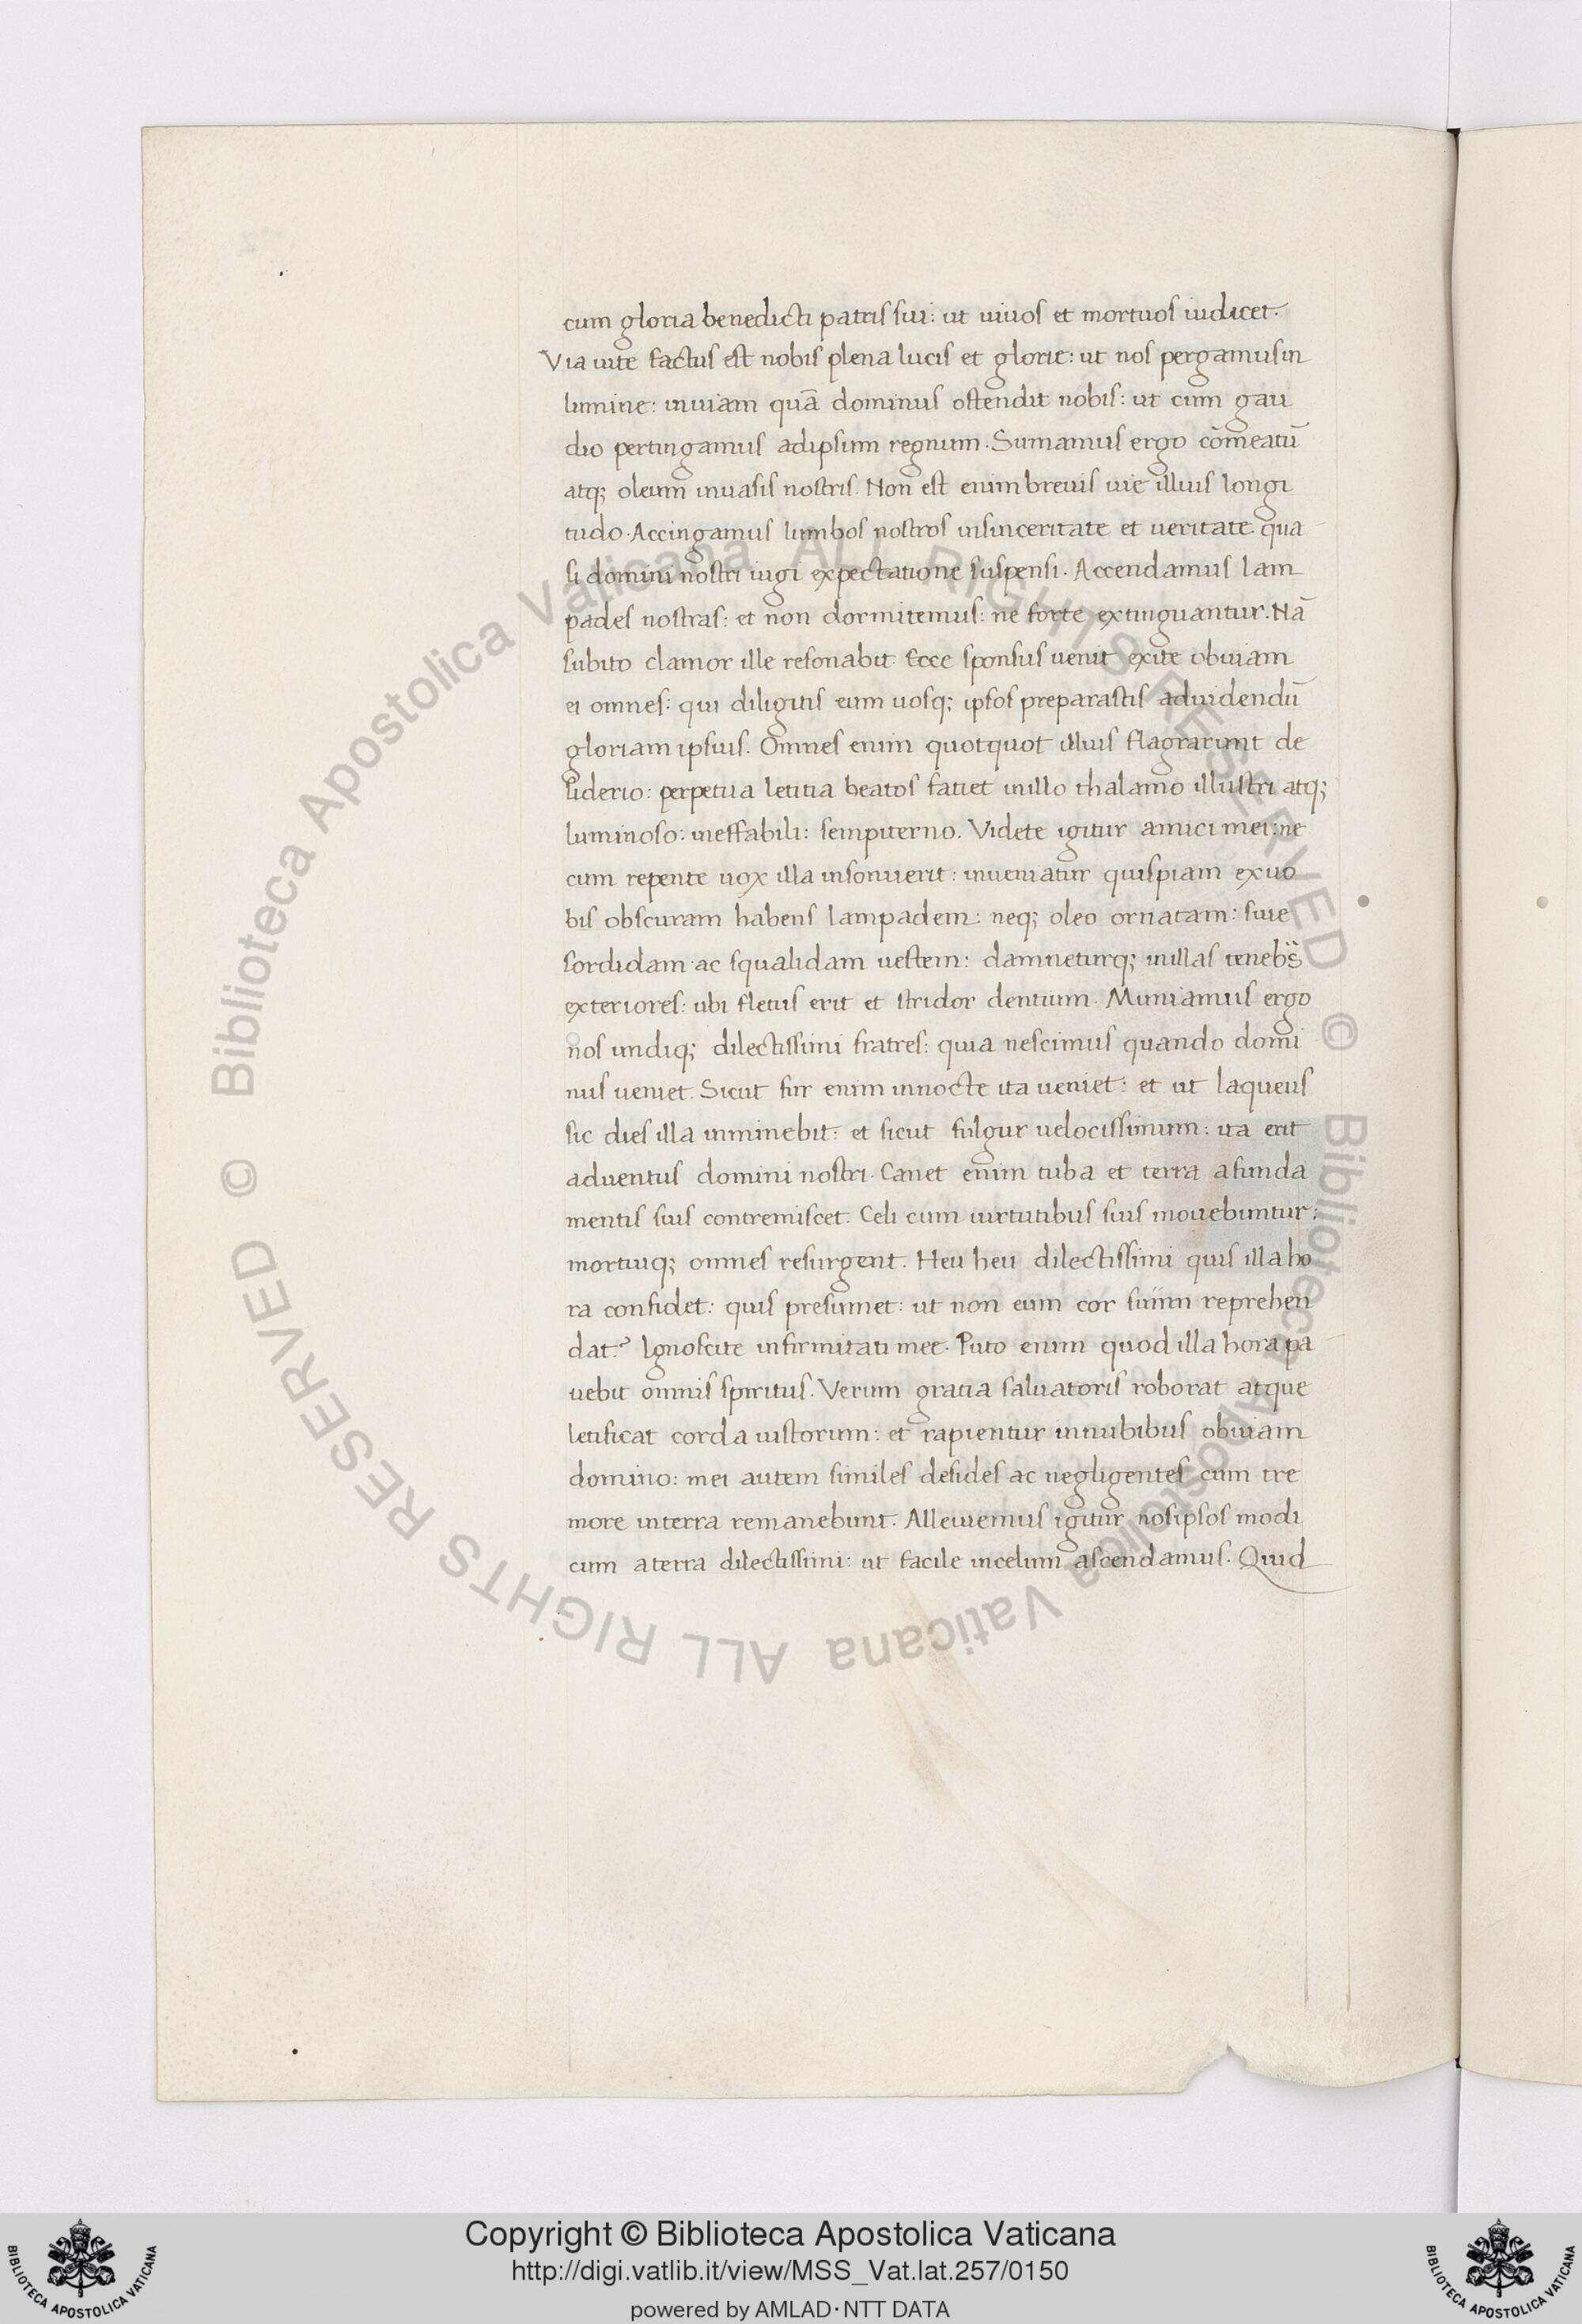 cum gloria benedicti patris sui: ut uiuos et mortuos iudicet.
Via uite factus est nobis plena lucis et glorie: ut nos pergamus in
lumine: in uiam quā dominus ostendit nobis: ut cum gau
dio pertingamus ad ipsum regnum. Sumamus ergo cōmeatū
atq; oleum in uasis nostris. Non est enim brevis uie illius longi
tudo. Accingamus lumbos nostros in sinceritate et ueritate qua
si domini nostri iugi expectatione suspensi. Accendamus lam
pades nostras: et non dormitemus: ne forte extinguantur. Nā
subito clamor ille resonabit: Ecce sponsus uenit exite obuiam
ei omnes: qui diligitis eum uosq; ipsos preparastis ad uidendū
gloriam ipsius. Omnes enim quotquot illius flagrarunt de
siderio: perpetua letitia beatos fatiet in illo thalamo illustri atq;
luminoso: ineffabili: sempiterno. Videte igitur amici mei: ne
cum repente uox illa insonuerit: inueniatur quispiam ex uo
bis obscuram habens lampadem: neq; oleo ornatam: siue
sordidam ac squalidam uestem: damneturq; in illas tenebs̈
exteriores: ubi fletus erit et stridor dentium. Muniamus ergo
nos undiq; dilectissimi fratres: quia nescimus quando domi
nus ueniet. Sicut fur enim in nocte ita ueniet: et ut laqueus
sic dies illa inminebit: et sicut fulgur uelocissimum: ita erit
aduentus domini nostri. Canet enim tuba et terra a funda
mentis suis contremiscet. Celi cum uirtutibus suis mouebuntur:
mortuiq; omnes resurgent. Heu heu dilectissimi quis illa ho
ra confidet: quis presumet: ut non eum cor suum reprehen
dat? Ignoscite infirmitati mee. Puto enim quod illa hora pa
uebit omnis spiritus. Verum gratia saluatoris roborat atque
letificat corda iustorum: et rapientur in nubibus obuiam
domino: mei autem similes desides ac negligentes cum tre
more in terra remanebunt. Alleuiemus igitur nos ipsos modi
cum a terra dilectissimi: ut facile in celum ascendamus. Quid
© Biblioteca Apostolica Vaticana ALL RIGHTS RESERVED © Biblioteca Apostolica Vaticana ALL RIGHTS RESERVED
Copyright © Biblioteca Apostolica Vaticana
http://digi.vatlib.it/view/MSS_Vat.lat.257/0150
powered by AMLAD·NTT DATA
BIBLIOTECA APOSTOLICA VATICANA
BIBLIOTECA APOSTOLICA VATICANA